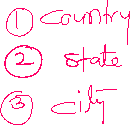 ① country
② state
③ city